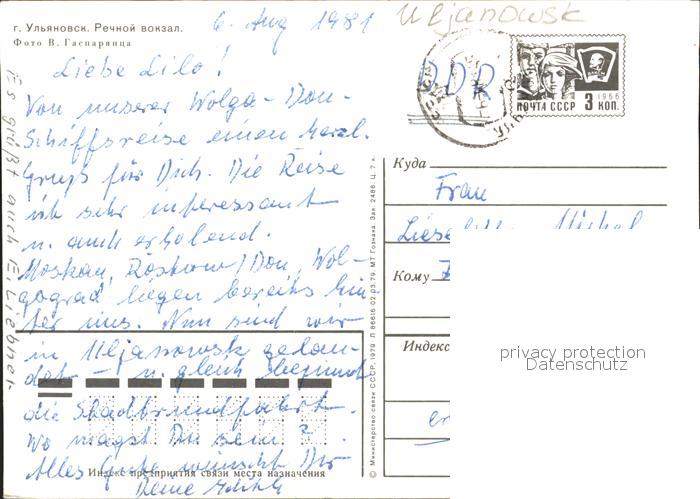 г. Ульяновск. Речной вокзал.
Фото В. Гаспарянца
6. Aug 1981
Uljanowsk
DDR
ПОЧТА СССР 3 КОП.
1966
Liebe Lilo!
Von unserer Wolga-Don-
Schiffsreise einen herzl.
Gruß für Dich. Die Reise
ist sehr interessant
u. auch erholend.
Moskau, Rostow/Don, Wol-
gograd liegen bereits hin-
ter uns. Nun sind wir
in Uljanowsk gelan-
det - u. gleich beginnt
die Stadtrundfahrt.
Wo magst Du sein?
Alles Gute wünscht Dir
Deine
Es grüßt auch E. Liebner.
Куда
Frau
Кому
Индекс
privacy protection
Datenschutz
Индекс предприятия связи места назначения
© Министерство связи СССР, 1979. Л 86616 02.03.79. МТ Гознака. Зак. 2486. Ц. 7 к.